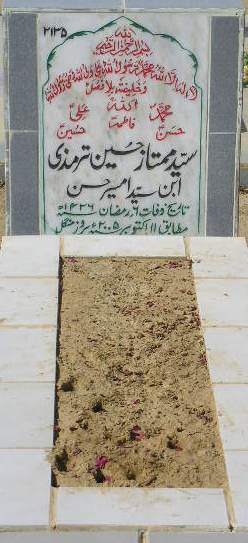 ۲۱۳۵
بسم اللہ الرحمن الرحیم
لا الہ الا اللہ محمد رسول اللہ علی ولی اللہ وصی رسول اللہ
و خلیفتہ بلا فصل
محمدؐ اللہ علیؑ
حسنؑ فاطمہؑ حسینؑ
سید ممتاز حسین ترمذی
ابن سید امیر حسن
تاریخ وفات ۶ رمضان ۱۴۲۶ھ
مطابق ۱۱ اکتوبر ۲۰۰۵ء بروز منگل